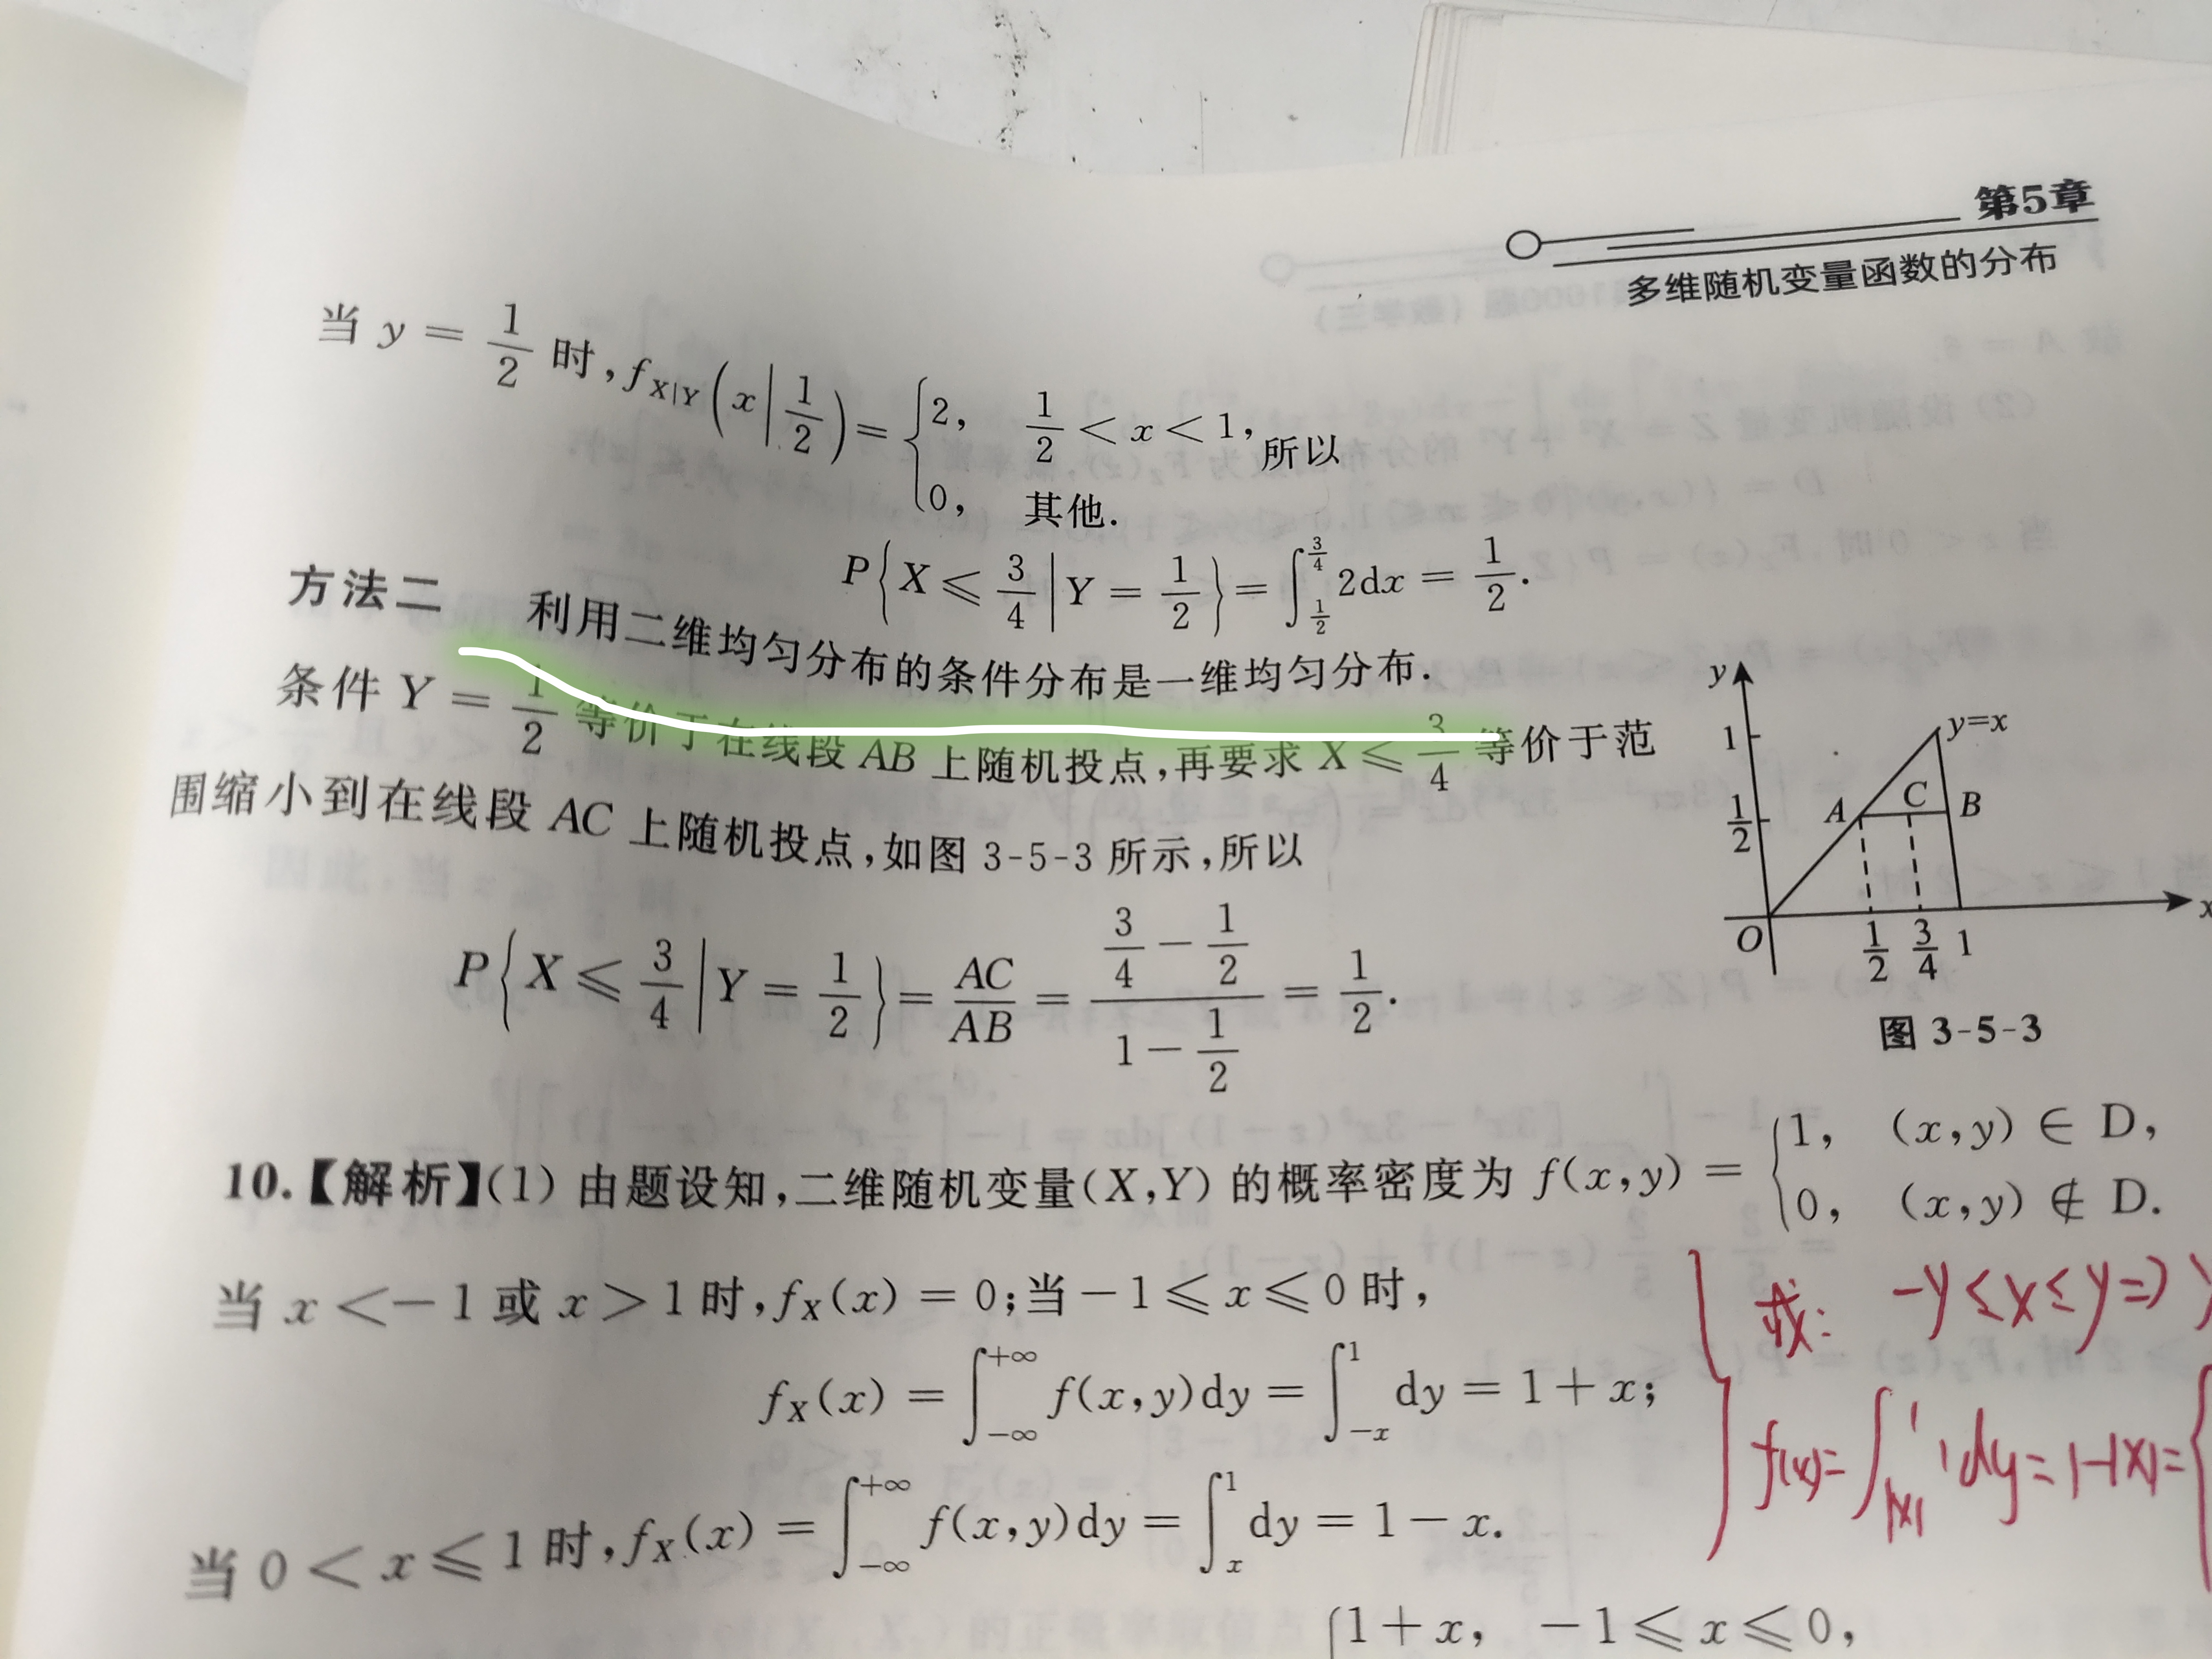 第5章
多维随机变量函数的分布
当 y = 1/2 时, f_{X|Y}(x|1/2) = { 2, 1/2 < x < 1, 0, 其他. 所以
P{X ⩽ 3/4 | Y = 1/2} = ∫_{1/2}^{3/4} 2dx = 1/2.
方法二 利用二维均匀分布的条件分布是一维均匀分布.
条件 Y = 1/2 等价于在线段 AB 上随机投点,再要求 X ⩽ 3/4 等价于范
围缩小到在线段 AC 上随机投点,如图 3-5-3 所示,所以
P{X ⩽ 3/4 | Y = 1/2} = AC/AB = (3/4 − 1/2)/(1 − 1/2) = 1/2.
y
1
y=x
1/2
A
C
B
O
1/2
3/4
1
x
图 3-5-3
10.【解析】(1) 由题设知,二维随机变量(X,Y) 的概率密度为 f(x,y) = { 1, (x,y) ∈ D, 0, (x,y) ∉ D.
当 x < −1 或 x > 1 时, f_X(x) = 0;当 −1 ⩽ x ⩽ 0 时,
f_X(x) = ∫_{−∞}^{+∞} f(x,y)dy = ∫_{−x}^{1} dy = 1 + x;
当 0 < x ⩽ 1 时, f_X(x) = ∫_{−∞}^{+∞} f(x,y)dy = ∫_{x}^{1} dy = 1 − x.
{ 1 + x, −1 ⩽ x ⩽ 0,
或: −y ≤ x ≤ y ⇒
f(x) = ∫_{|x|}^{1} 1 dy = 1−|x| = {